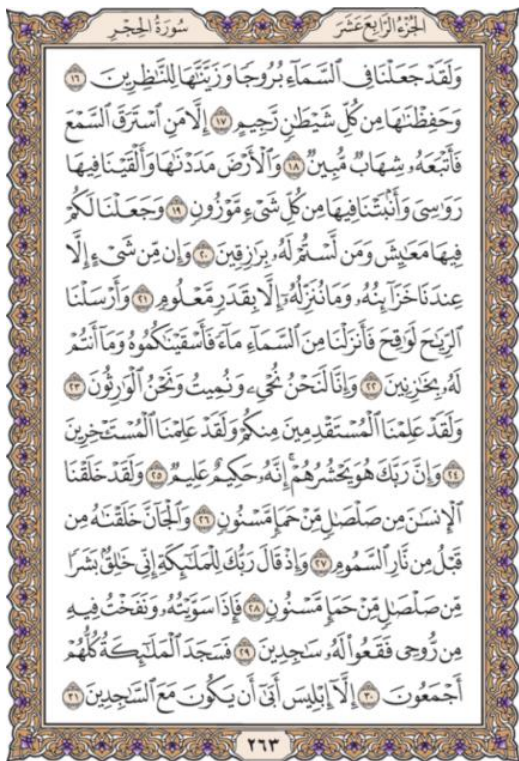 الجُزْءُ الرَّابِعَ عَشَرَ سُورَةُ الحِجْرِ
وَلَقَدْ جَعَلْنَا فِي السَّمَآءِ بُرُوجًا وَزَيَّنَّٰهَا لِلنَّٰظِرِينَ ١٦
وَحَفِظْنَٰهَا مِن كُلِّ شَيْطَٰنٍ رَّجِيمٍ ١٧ إِلَّا مَنِ ٱسْتَرَقَ ٱلسَّمْعَ
فَأَتْبَعَهُۥ شِهَابٌ مُّبِينٌ ١٨ وَٱلْأَرْضَ مَدَدْنَٰهَا وَأَلْقَيْنَا فِيهَا
رَوَٰسِيَ وَأَنۢبَتْنَا فِيهَا مِن كُلِّ شَيْءٍ مَّوْزُونٍ ١٩ وَجَعَلْنَا لَكُمْ
فِيهَا مَعَٰيِشَ وَمَن لَّسْتُمْ لَهُۥ بِرَٰزِقِينَ ٢٠ وَإِن مِّن شَيْءٍ إِلَّا
عِندَنَا خَزَآئِنُهُۥ وَمَا نُنَزِّلُهُۥٓ إِلَّا بِقَدَرٍ مَّعْلُومٍ ٢١ وَأَرْسَلْنَا
ٱلرِّيَٰحَ لَوَٰقِحَ فَأَنزَلْنَا مِنَ ٱلسَّمَآءِ مَآءً فَأَسْقَيْنَٰكُمُوهُ وَمَآ أَنتُمْ
لَهُۥ بِخَٰزِنِينَ ٢٢ وَإِنَّا لَنَحْنُ نُحْيِۦ وَنُمِيتُ وَنَحْنُ ٱلْوَٰرِثُونَ ٢٣
وَلَقَدْ عَلِمْنَا ٱلْمُسْتَقْدِمِينَ مِنكُمْ وَلَقَدْ عَلِمْنَا ٱلْمُسْتَـْٔخِرِينَ
٢٤ وَإِنَّ رَبَّكَ هُوَ يَحْشُرُهُمْۚ إِنَّهُۥ حَكِيمٌ عَلِيمٌ ٢٥ وَلَقَدْ خَلَقْنَا
ٱلْإِنسَٰنَ مِن صَلْصَٰلٍ مِّنْ حَمَإٍ مَّسْنُونٍ ٢٦ وَٱلْجَآنَّ خَلَقْنَٰهُ مِن
قَبْلُ مِن نَّارِ ٱلسَّمُومِ ٢٧ وَإِذْ قَالَ رَبُّكَ لِلْمَلَٰٓئِكَةِ إِنِّي خَٰلِقٌۢ بَشَرًا
مِّن صَلْصَٰلٍ مِّنْ حَمَإٍ مَّسْنُونٍ ٢٨ فَإِذَا سَوَّيْتُهُۥ وَنَفَخْتُ فِيهِ
مِن رُّوحِي فَقَعُوا۟ لَهُۥ سَٰجِدِينَ ٢٩ فَسَجَدَ ٱلْمَلَٰٓئِكَةُ كُلُّهُمْ
أَجْمَعُونَ ٣٠ إِلَّآ إِبْلِيسَ أَبَىٰٓ أَن يَكُونَ مَعَ ٱلسَّٰجِدِينَ ٣١
٢٦٣